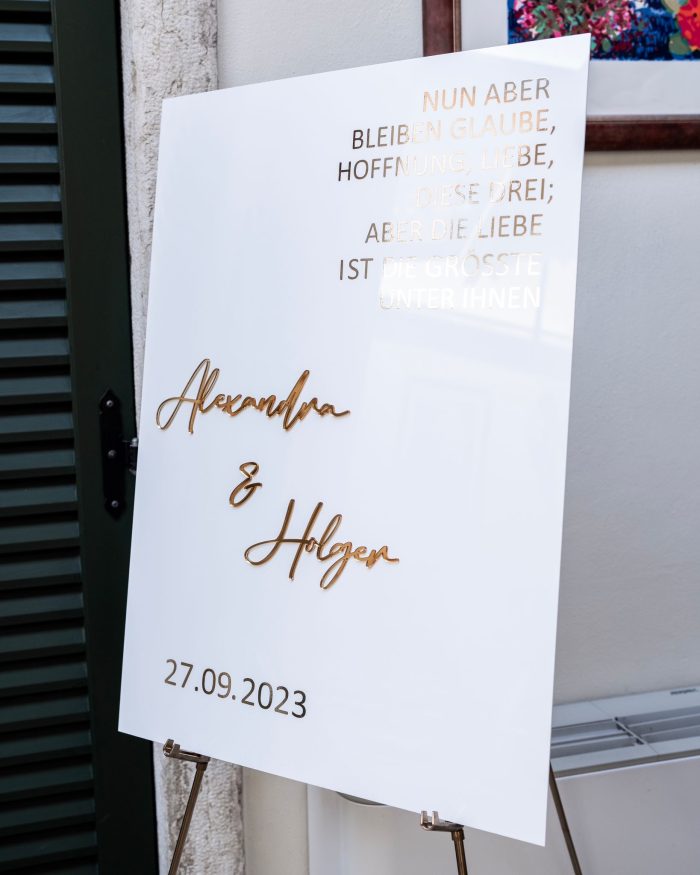 NUN ABER
BLEIBEN GLAUBE,
HOFFNUNG, LIEBE,
DIESE DREI;
ABER DIE LIEBE
IST DIE GRÖSSTE
UNTER IHNEN
Alexandra
&
Holger
27.09.2023